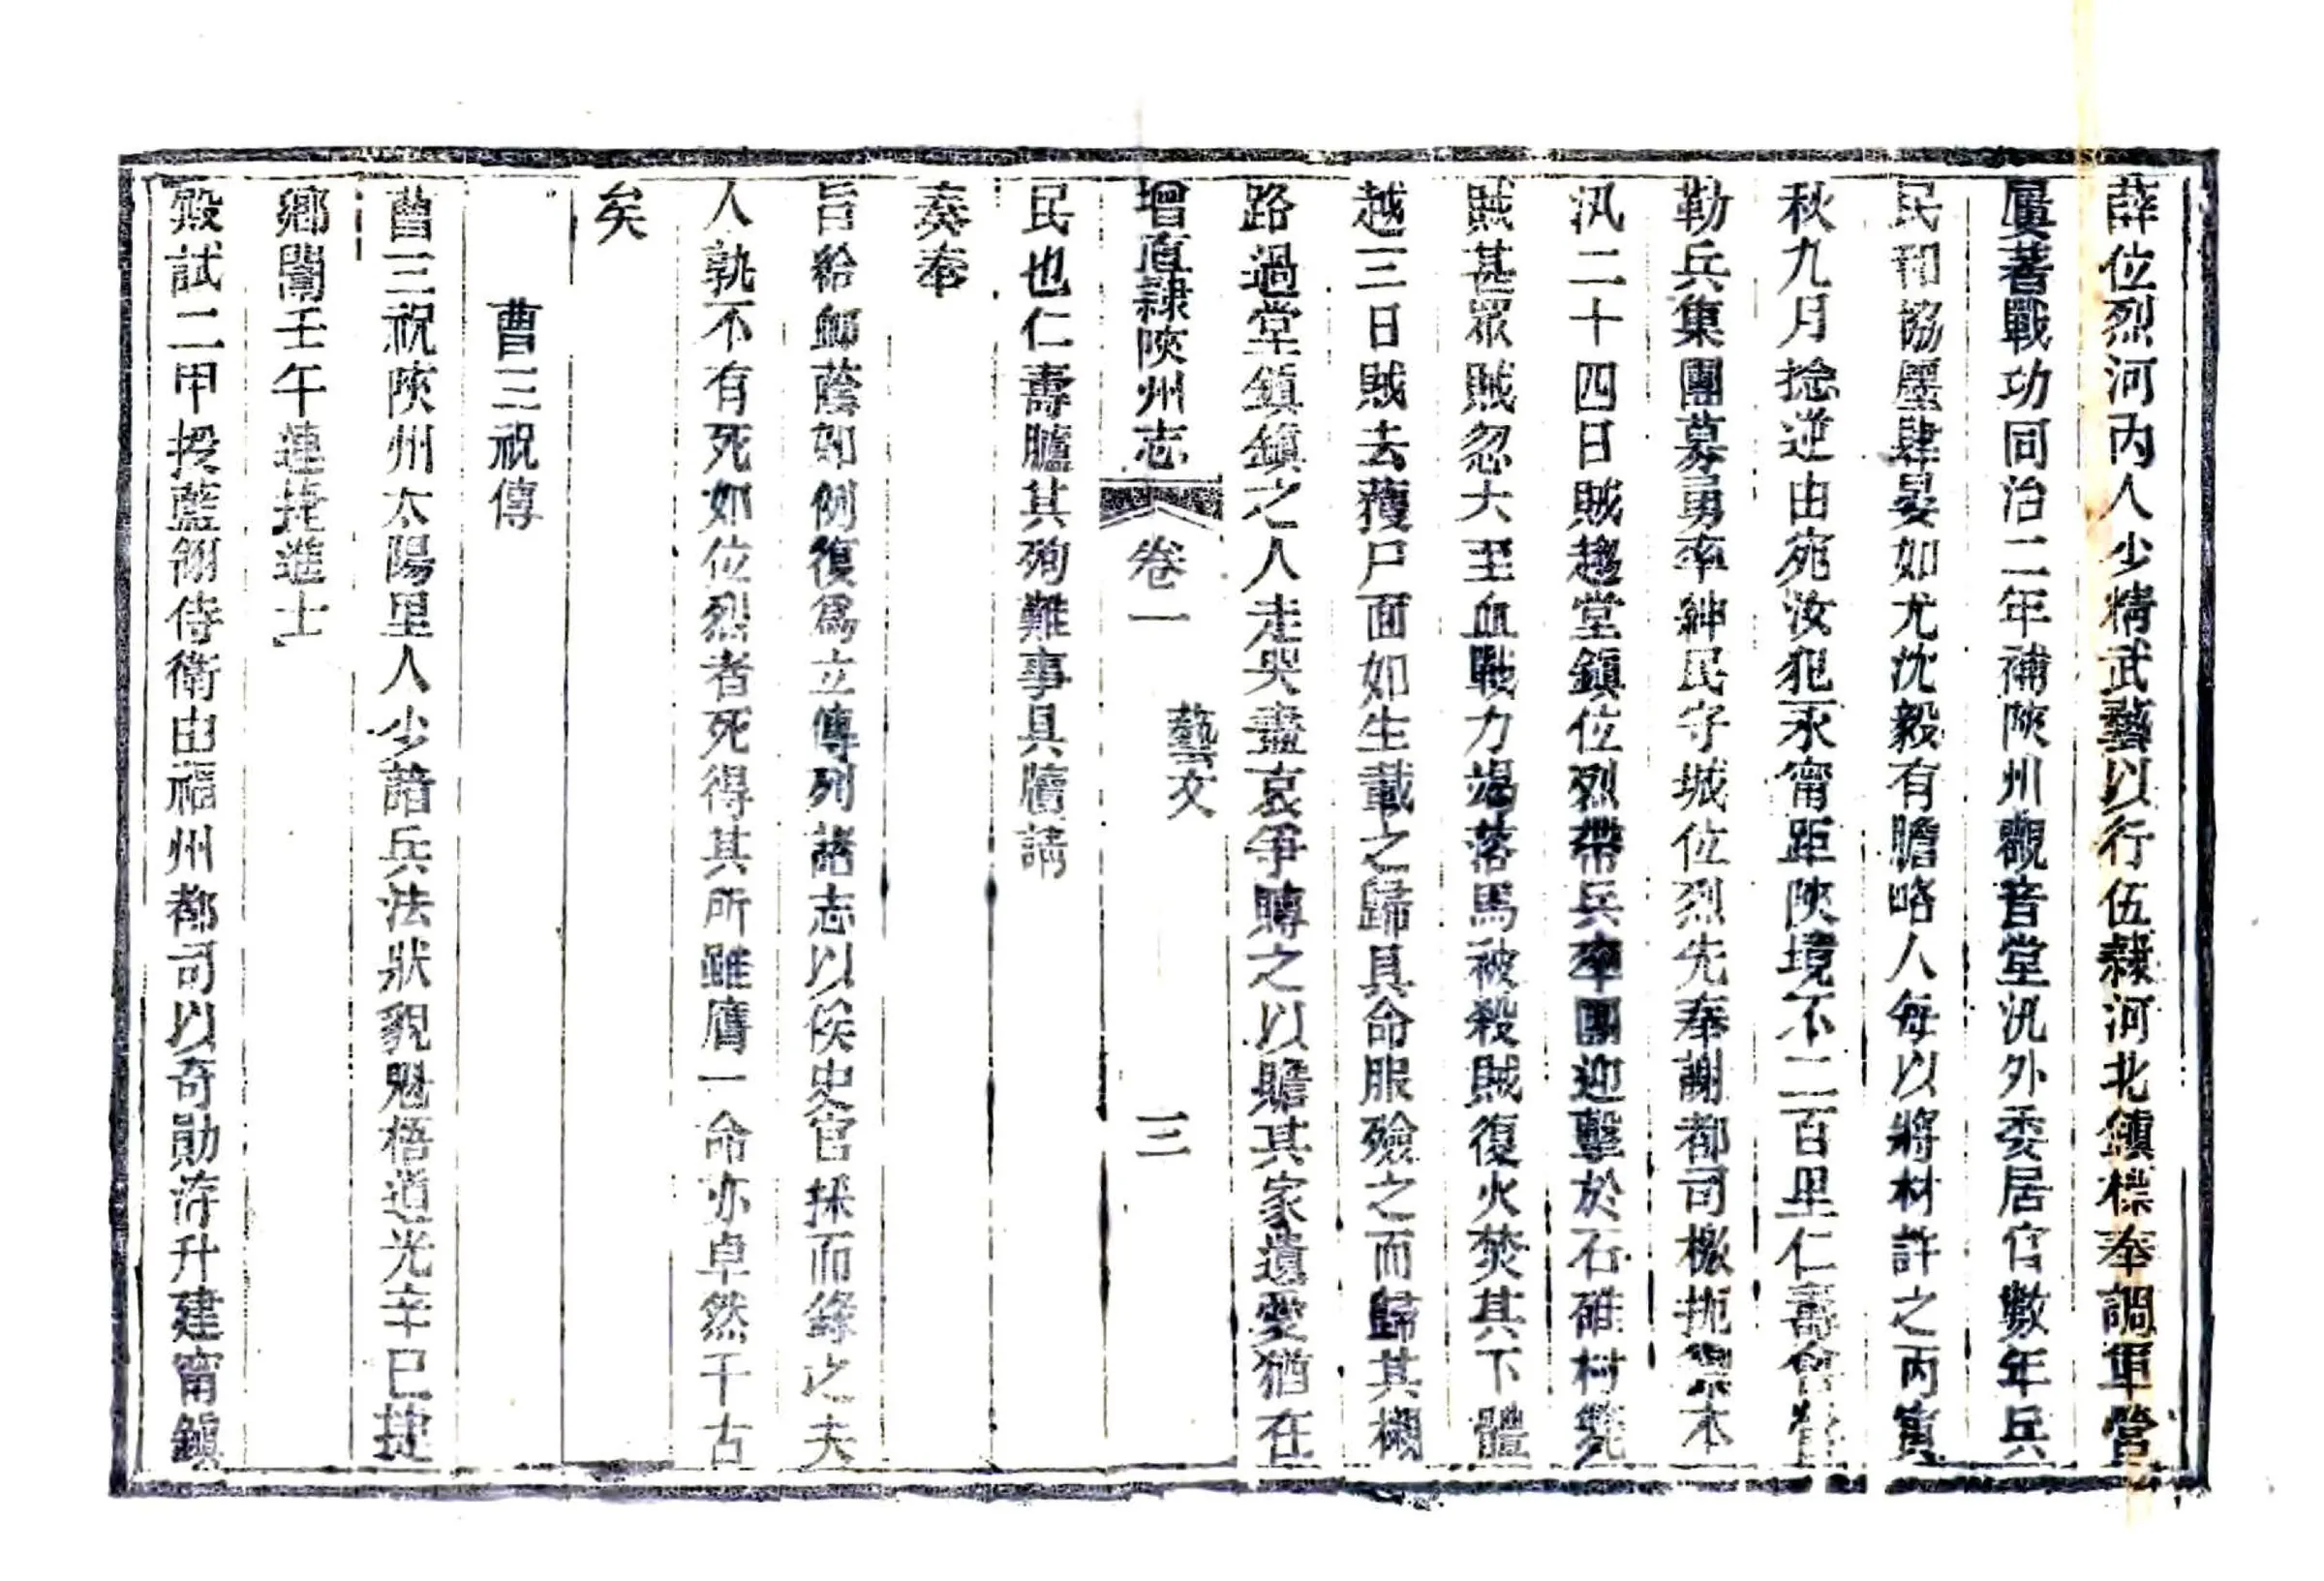 薛位烈河內人少精武藝以行伍隸河北鎮標奉調軍營
屢著戰功同治二年補陝州觀音堂汛外委居官數年兵
民和協墨肆晏如尤沈毅有膽略人每以將材許之丙寅
秋九月捻逆由宛汝犯永甯距陝境不二百里仁壽會營
勒兵集團募勇率紳民守城位烈先奉謝都司檄扼禦本
汛二十四日賊趨堂鎮位烈帶兵率團迎擊於石碓村斃
賊甚眾賊忽大至血戰力竭落馬被殺賊復火焚其下體
越三日賊去獲尸面如生載之歸具命服殮之而歸其櫬
路過堂鎮鎮之人走哭盡哀爭賻之以贍其家遺愛猶在
增直隸陝州志 卷一 藝文 三
民也仁壽臚其殉難事具牘請
奏奉
旨給卹蔭如例復為立傳列諸志以俟史官採而錄之夫
人孰不有死如位烈者死得其所雖膺一命亦卓然千古
矣
曹三祝傳
曹三祝陝州太陽里人少諳兵法狀貌魁梧道光辛巳捷
鄉闈壬午連捷進士
殿試二甲授藍翎侍衛由福州都司以奇勛洊升建甯鎮